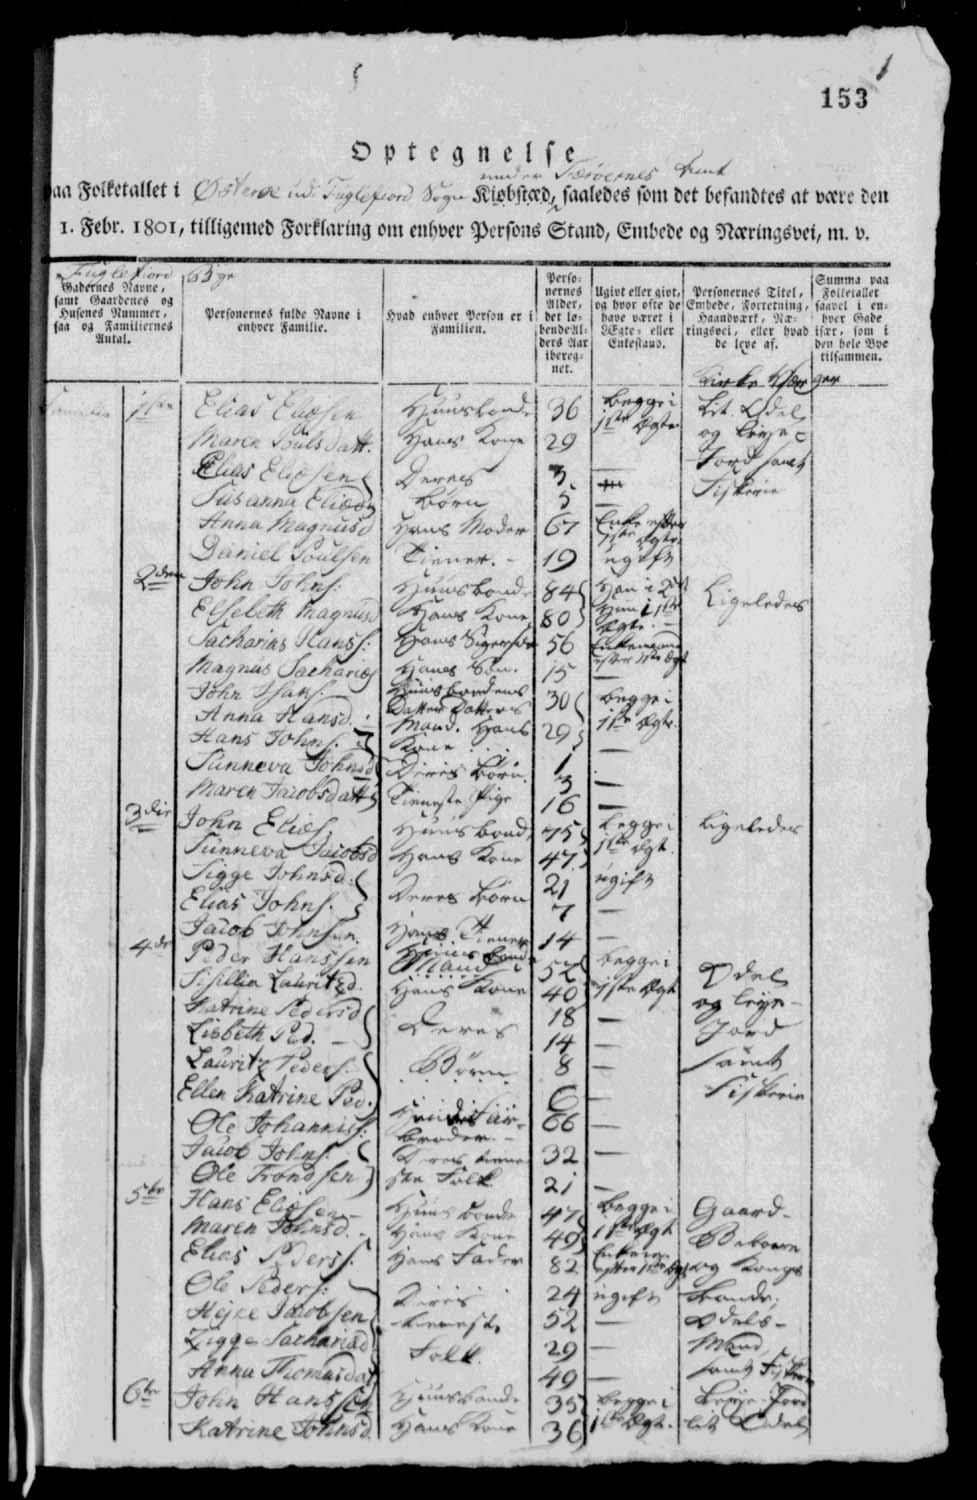 153
Optegnelse
under Færøernes Amt
paa Folketallet i Østerøe udi Fuglefiord Sogn Kiøbstæd, saaledes som det befandtes at være den
1. Febr. 1801, tilligemed Forklaring om enhver Persons Stand, Embede og Næringsvei, m. v.
Fuglefiord Bÿge
Gadernes Navne, samt Gaardenes og Husenes Nummer, saa og Familiernes Antal.
Personernes fulde Navne i enhver Familie.
Hvad enhver Person er i Familien.
Personernes Alder, det løbende Alders Aar iberegnet.
Ugivt eller givt, og hvor ofte de have været i Ægte- eller Enkestand.
Personernes Titel, Embede, Forretning, Haandværk, Næringsvei, eller hvad de leve af.
Summa paa Folketallet saavel i enhver Gade især, som i den hele Bye tilsammen.
Kirke Værger
Familie 1ste Elias Eliæsen Huusbonde 36 begge i Lit Odel
Maren Poulsdatt. Hans Kone 29 1ste Ægte og Leye-
Elias Eliæsen Deres 3 — Jord samt
Susanna Eliæsd børn 5 — Fiskerie
Anna Magnusd Hans Moder 67 Enke efter 1ste Ægte.
Daniel Poulsen Tiener. - 19 ugift
2den John Johns: Huusbonde 84 Han i 2det Ligeledes
Elsebeth Magnusd Hans Kone 80 Hun i 1ste Ægte. -
Sacharias Hanss: Hans Svigersøn 56 Enkemand efter 1ste Ægt
Magnus Sacharias Hanes Søn. 15 —
John Isaks: Huusbondens 30 begge i
Anna Hansd. Datter Datters Mand. Hans 29 1ste Ægte.
Hans Johns. Kone 1 —
Sunneva Johnsd Deres Børn 3 —
Maren Jacobsdatt Tieneste Pige 16 —
3die John Eliæs. Huusbonde 75 begge i Ligeledes
Sunneva Jacobsd Hans Kone 47 1ste Ægt.
Sigge Johnsd: 21 ugift
Elias Johns. Deres Børn 7 —
Jacob Johnsen. Hans Tiener 14 —
4de Peder Hanssen Huusbonde Mand 52 begge i Odel
Sisillia Lauritzd. Hans Kone 40 1ste Ægt og leye-
Katrine Pedersd 18 — Jord
Lisbeth Ped. Deres 14 — samt
Lauritz Peders: Børn 8 — Fiskerie
Ellen Katrine Ped. 6 —
Ole Johanniss: broder. - 66 —
Jacob Johns: Deres tiene- 32 —
Ole Trondsen ste Folk 21 —
5te Hans Eliæsen Huusbonde 47 begge i Gaard-
Maren Johnsd. Hans Kone 49 1ste Ægt Beboere
Elias Pederss. Hans Fader 82 efter 1ste Ægt og Kongs
Ole Peders: Deres 24 ugift bonde,
Hejne Jacobsen tienest. 52 — Odels-
Zigge Sachariæd Folk. 29 — Mand,
Anna Thomasdat 49 — samt Fiskerie
6te John Hanssen Huusbonde 35 begge i Leye Jord
Katrine Johnsd. Hans Kone 36 1ste Ægt. lit Odel